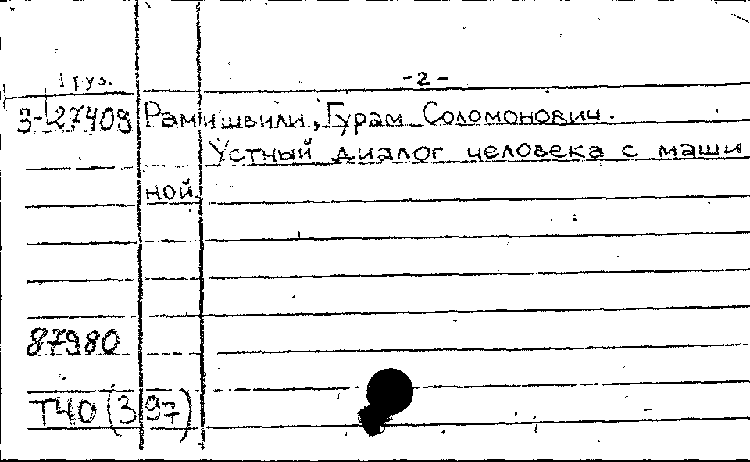 1 груз. -2-
3-27409 Рамишвили, Гурам Соломонович.
Устный диалог человека с маши
ной.
87980
Т40 (3 97)